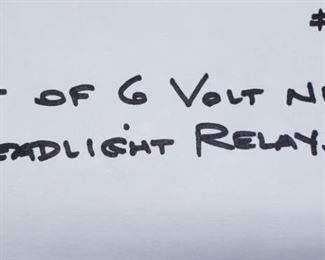 #
OF 6 VOLT
EADLIGHT RELAY